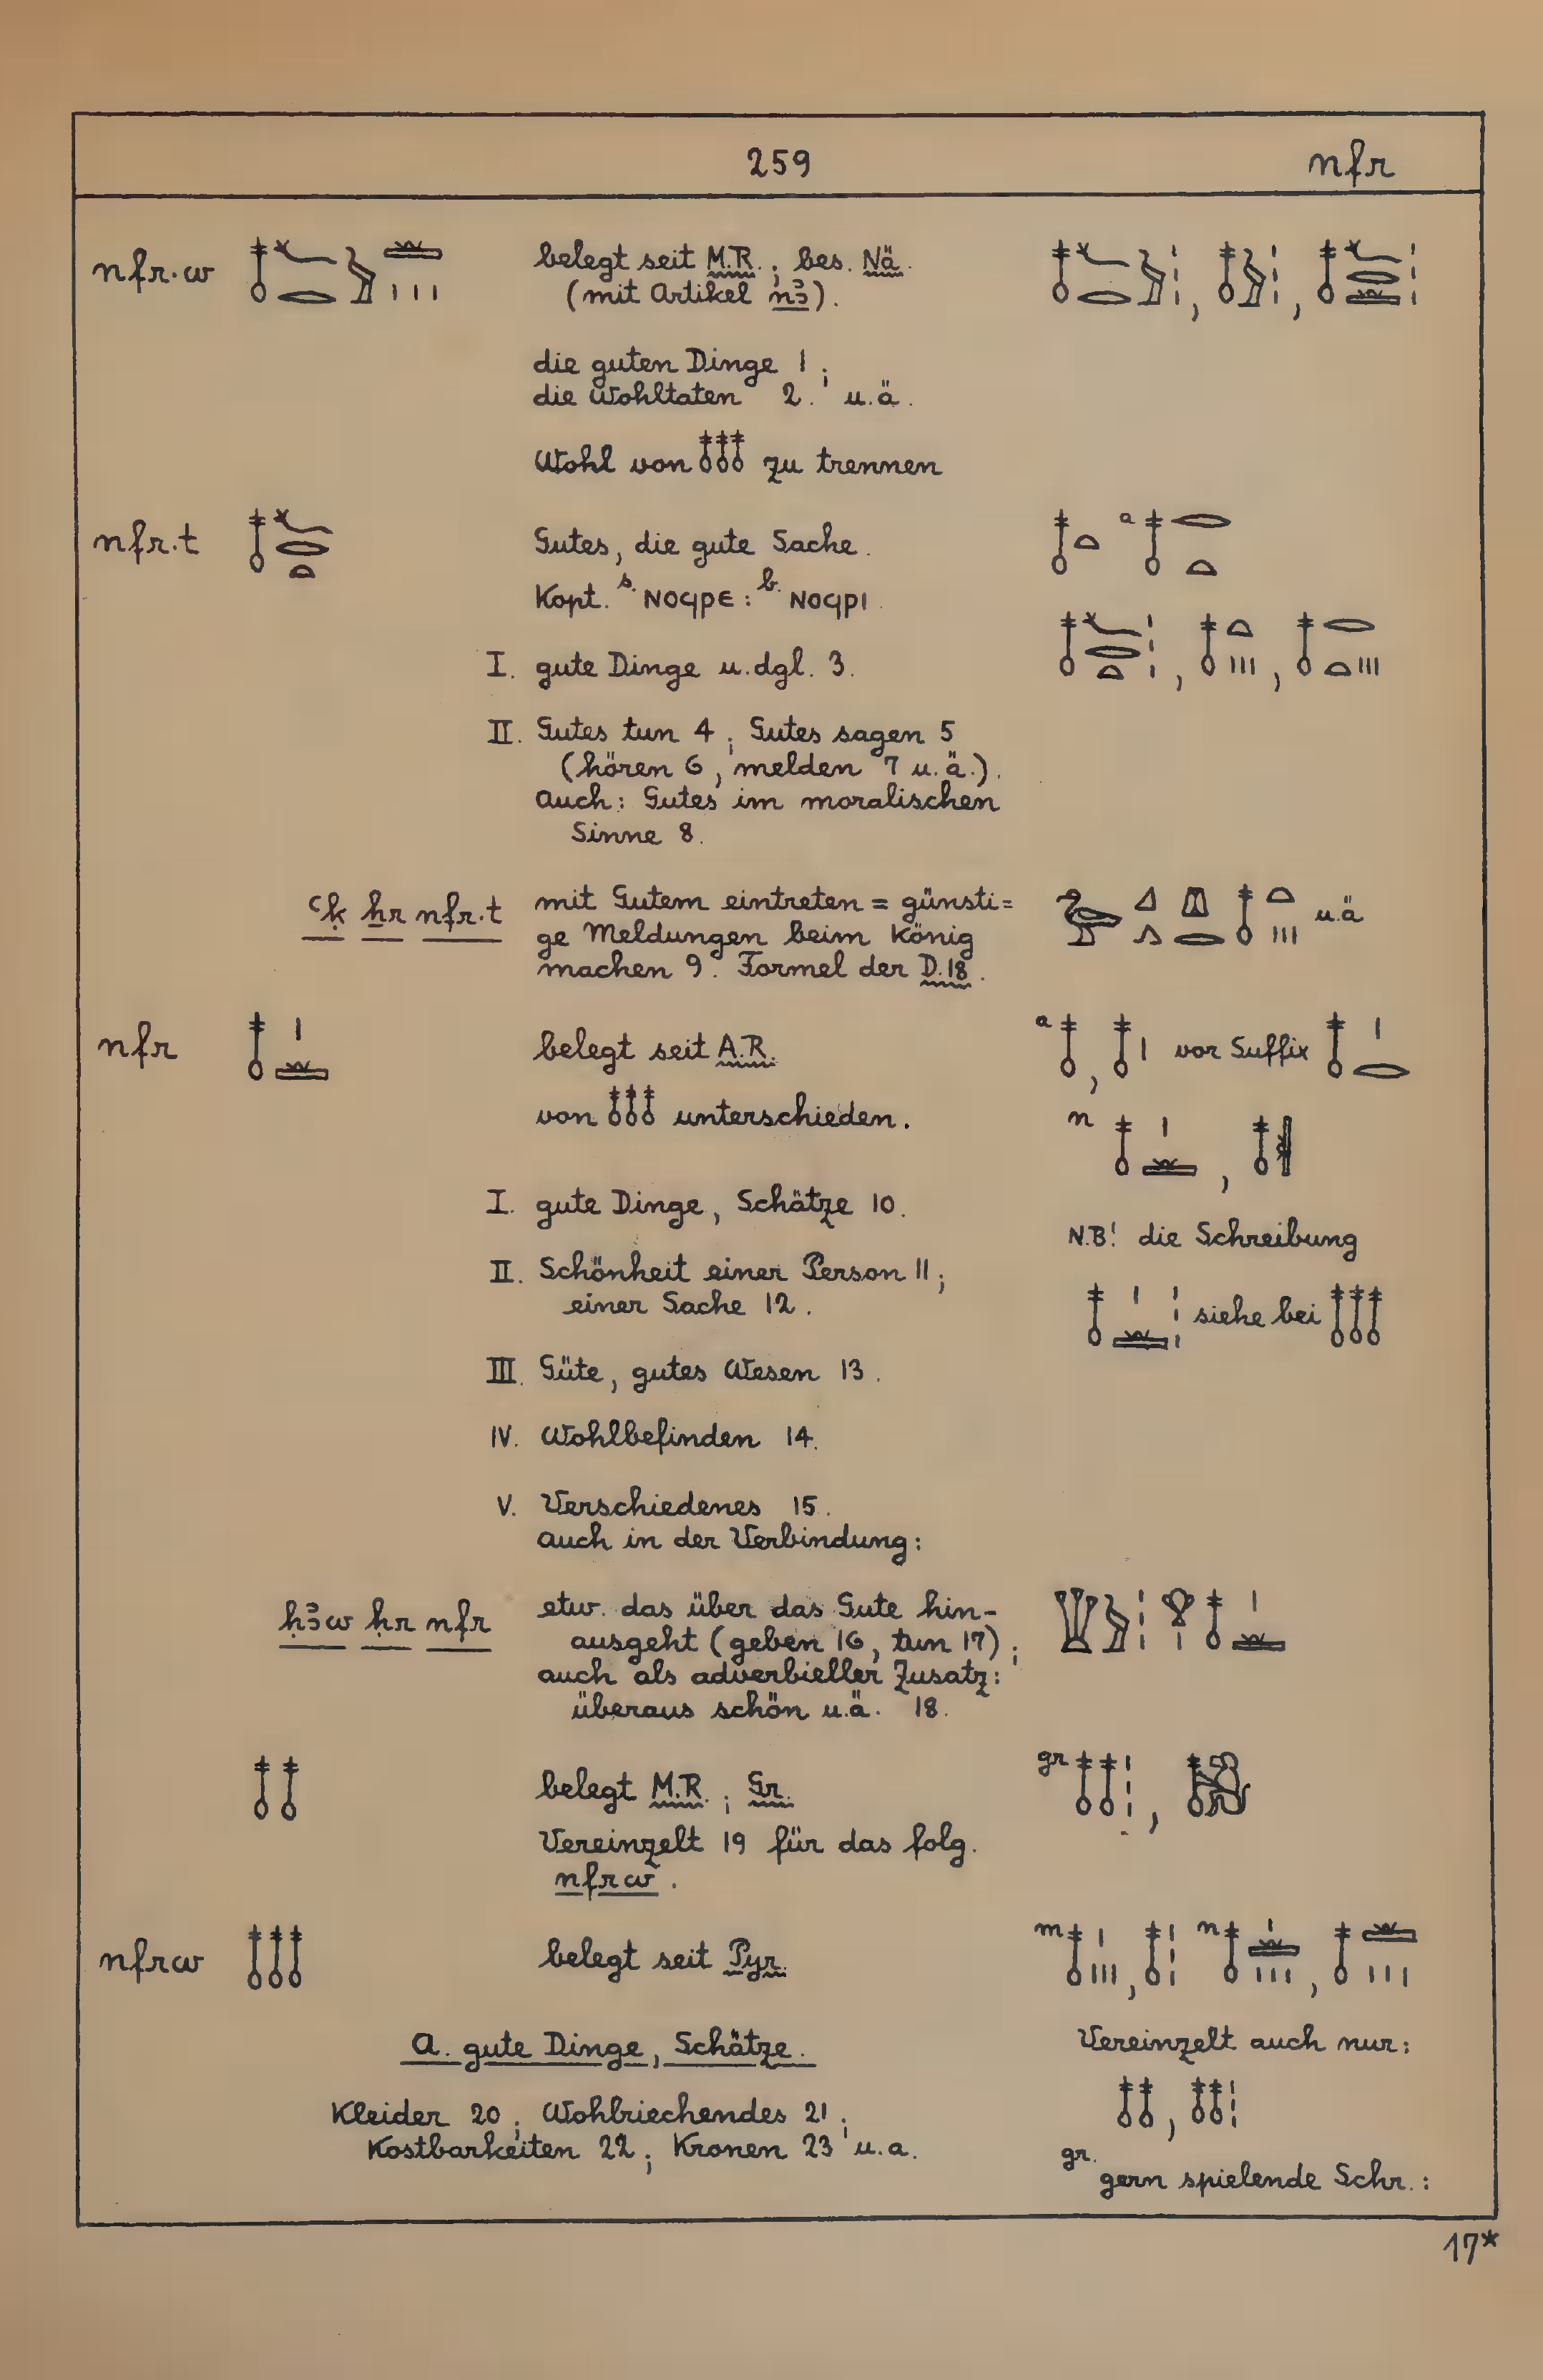 259 nfr
nfr.w belegt seit M.R.; bes. Nä.
(mit Artikel nꜣ).
die guten Dinge 1;
die Wohltaten 2. u.ä.
Wohl von 𓄤𓄤𓄤 zu trennen
nfr.t Gutes, die gute Sache.
a
Kopt. s. ⲛⲟϥⲣⲉ: b. ⲛⲟϥⲣⲓ.
I. gute Dinge u. dgl. 3.
II. Gutes tun 4; Gutes sagen 5
(hören 6, melden 7 u.ä.).
Auch: Gutes im moralischen
Sinne 8.
ꜥḳ ẖr nfr.t mit Gutem eintreten = günsti=
u.ä
ge Meldungen beim König
machen 9. Formel der D.18.
nfr belegt seit A.R.
a 𓄤, 𓄤𓏤 vor Suffix
von 𓄤𓄤𓄤 unterschieden.
n
I. gute Dinge, Schätze 10.
N.B! die Schreibung
II. Schönheit einer Person 11;
einer Sache 12.
siehe bei 𓄤𓄤𓄤
III. Güte, gutes Wesen 13.
IV. Wohlbefinden 14.
V. Verschiedenes 15.
Auch in der Verbindung:
ḥꜣw ḥr nfr etw. das über das Gute hin-
ausgeht (geben 16, tun 17);
auch als adverbieller Zusatz:
überaus schön u.ä. 18.
𓄤𓄤 belegt M.R.; Gr.
gr
Vereinzelt 19 für das folg.
nfrw.
nfrw 𓄤𓄤𓄤 belegt seit Pyr.
m n
A. gute Dinge, Schätze.
Vereinzelt auch nur:
Kleider 20; Wohlriechendes 21;
Kostbarkeiten 22; Kronen 23 u.a.
gr. gern spielende Schr.:
17*